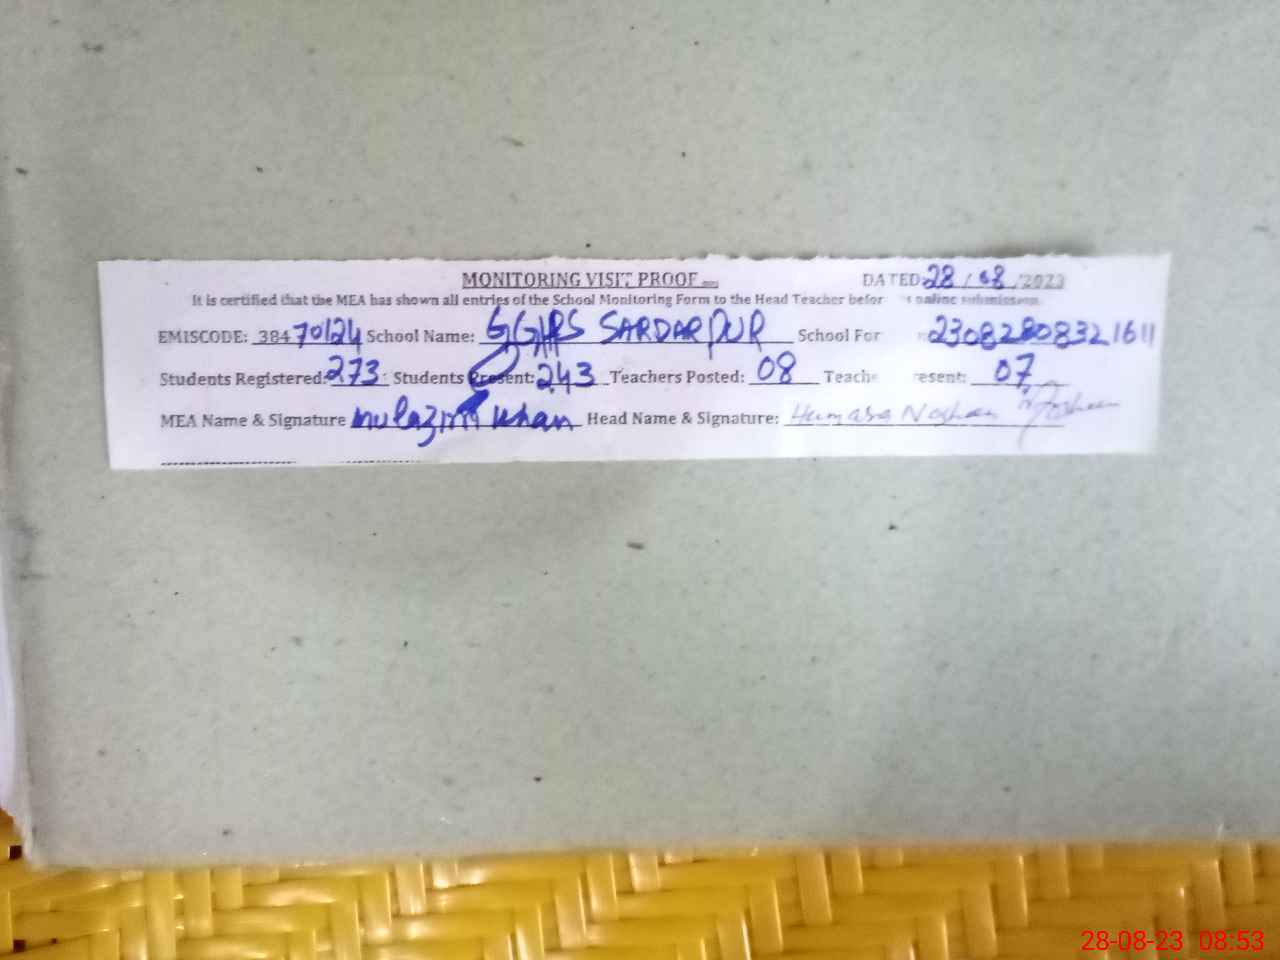 MONITORING VISIT PROOF DATED: 28 / 08 /2023
It is certified that the MEA has shown all entries of the School Monitoring Form to the Head Teacher befor online submission.
EMISCODE: 38470124 School Name: GGHS SARDARPUR School For 23082808321611
Students Registered: 273 Students Present: 243 Teachers Posted: 08 Teache resent: 07
MEA Name & Signature Mulazim Khan Head Name & Signature: Humara Nosheen Nosheen
28-08-23 08:53